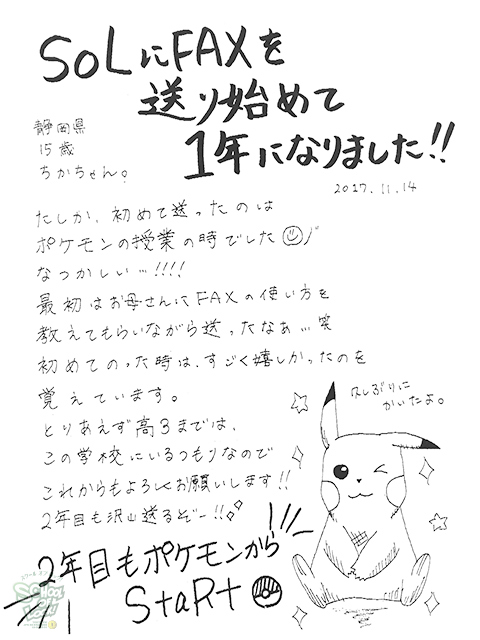 SOLにFAXを
送り始めて
1年になりました!!
静岡県
15歳
ちかちゃん。
2017.11.14
たしか、初めて送ったのは
ポケモンの授業の時でした
なつかしい…!!!!
最初はお母さんにFAXの使い方を
教えてもらいながら送ったなぁ…笑
初めてのった時は、すごく嬉しかったのを
覚えています。
とりあえず高3までは、
この学校にいるつもりなので
これからもよろしくお願いします!!
2年目も沢山送るぞー!!
久しぶりに
かいたよ。
2年目もポケモンから
StaRt
SCHOOL